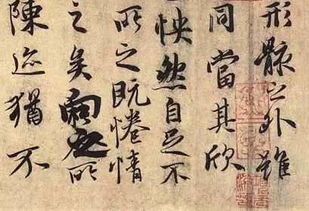 形骸之外雖
同當其欣
怏然自足不
所之既惓情
之矣向之所
陳迹猶不